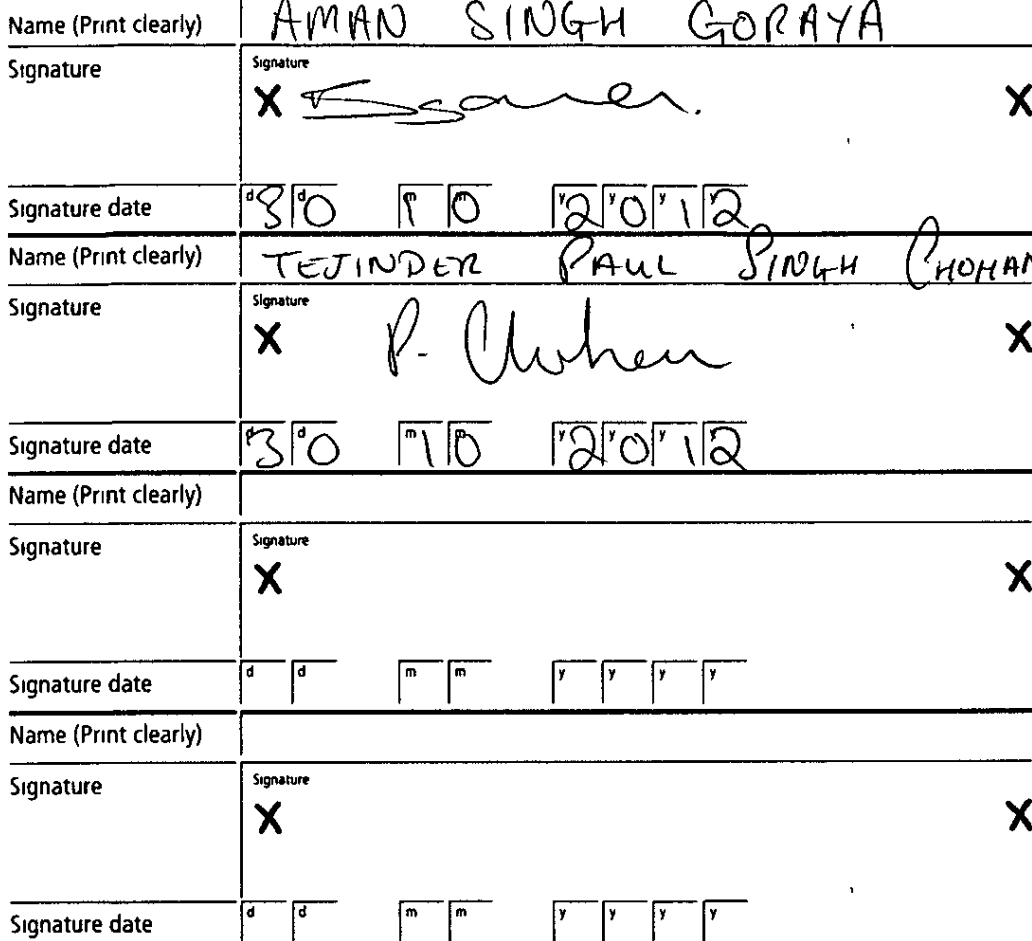 Name (Print clearly) AMAN SINGH GORAYA
Signature Signature
X X
Signature date d3 d0 m1 m0 y2 y0 y1 y2
Name (Print clearly) TEJINDER PAUL SINGH CHOHAN
Signature Signature
X P. Chohan X
Signature date d3 d0 m1 m0 y2 y0 y1 y2
Name (Print clearly)
Signature Signature
X X
Signature date d d m m y y y y
Name (Print clearly)
Signature Signature
X X
Signature date d d m m y y y y